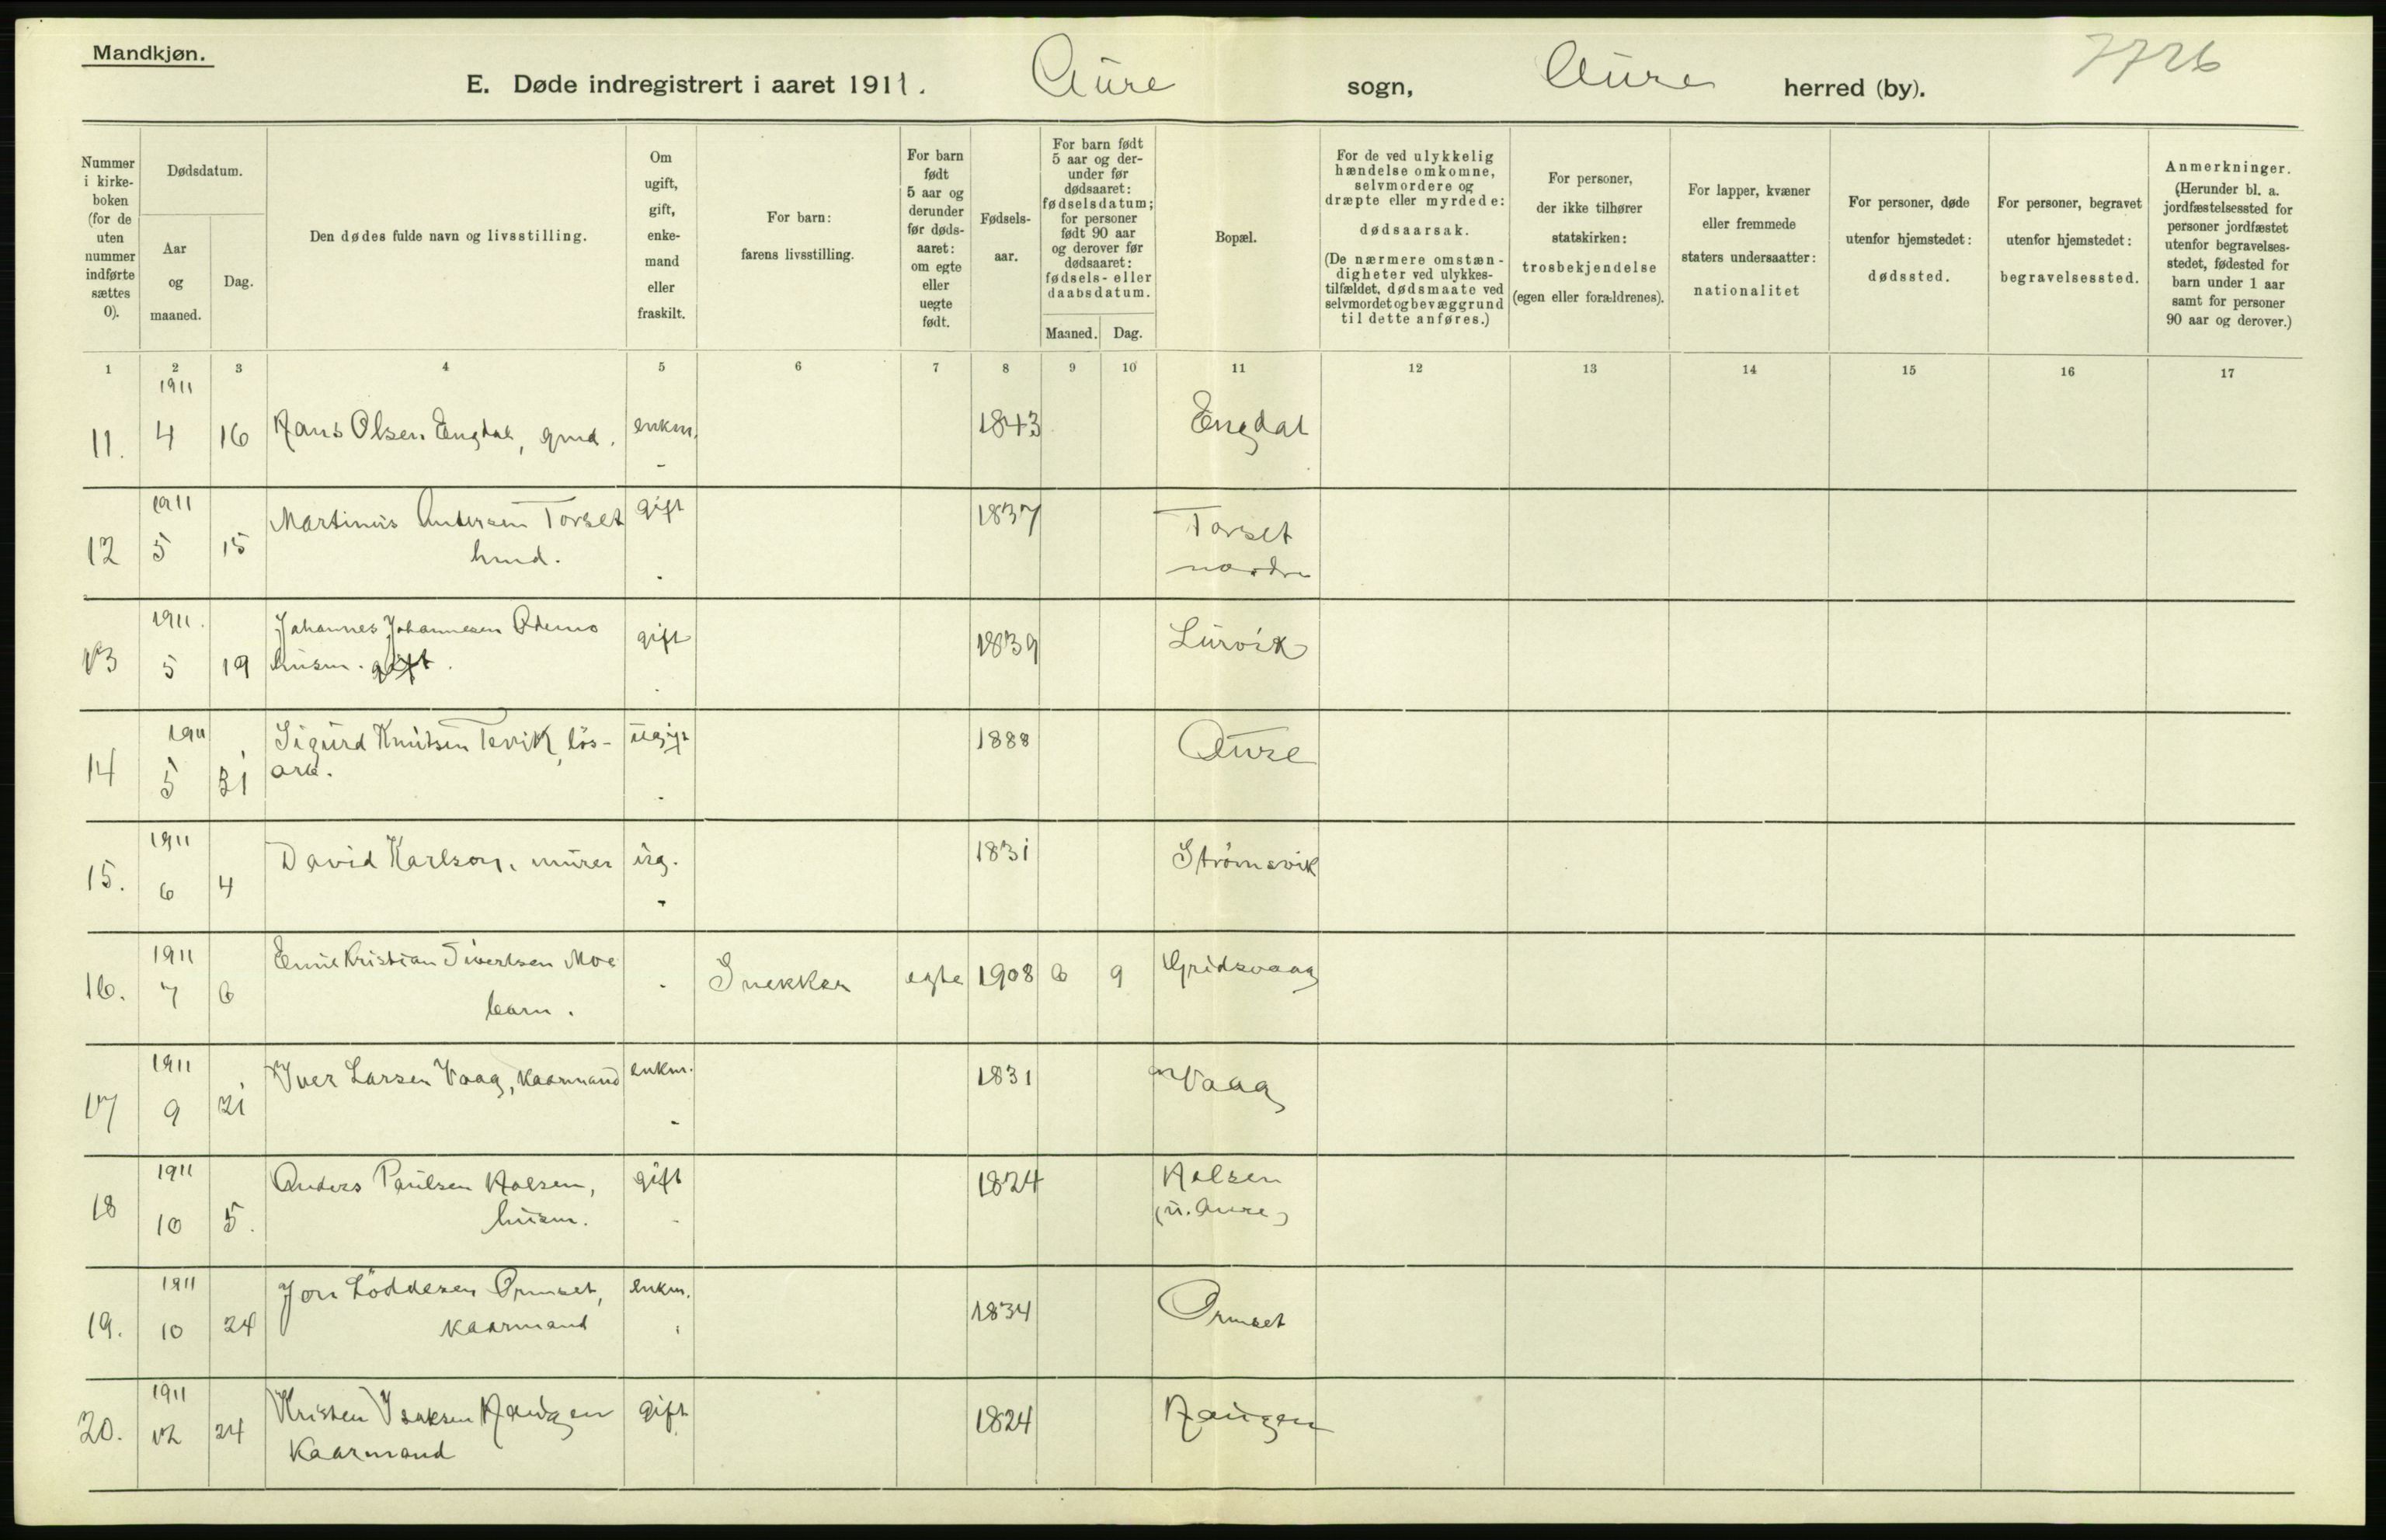 Mandkjøn.
7726
E. Døde indregistrert i aaret 1911. Aure sogn, Aure herred (by).
Nummer i kirkeboken (for de uten nummer indførte sættes 0).
Dødsdatum.
Aar og maaned.
Dag.
Den dødes fulde navn og livsstilling.
Om ugift, gift, enkemand eller fraskilt.
For barn: farens livsstilling.
For barn født 5 aar og derunder før dødsaaret: om egte eller uegte født.
Fødselsaar.
For barn født 5 aar og derunder før dødsaaret: fødselsdatum; for personer født 90 aar og derover før dødsaaret: fødsels- eller daabsdatum.
Maaned. Dag.
Bopæl.
For de ved ulykkelig hændelse omkomne, selvmordere og dræpte eller myrdede: dødsaarsak. (De nærmere omstændigheter ved ulykkestilfældet, dødsmaate ved selvmordet og bevæggrund til dette anføres.)
For personer, der ikke tilhører statskirken: trosbekjendelse (egen eller forældrenes).
For lapper, kvæner eller fremmede staters undersaatter: nationalitet
For personer, døde utenfor hjemstedet: dødssted.
For personer, begravet utenfor hjemstedet: begravelsessted.
Anmerkninger. (Herunder bl. a. jordfæstelsessted for personer jordfæstet utenfor begravelsesstedet, fødested for barn under 1 aar samt for personer 90 aar og derover.)
1 2 3 4 5 6 7 8 9 10 11 12 13 14 15 16 17
1911
11. 4 16 Hans Olsen Engdal, gmd. enkm. 1843 Engdal
1911
12 5 15 Martinus Andersen Torset gift 1837 Torset
hmd. nordre
1911.
13 5 19 Johannes Johannesen gift 1839 Lurvik
husm. gift.
1911
14 5 31 Sigurd Knutsen Tevik, løs- ugift 1888 Aure
arb.
1911
15. 6 4 David Karlson, murer ug. 1831 Strømsvik
1911
16. 7 6 Emil Kristian Sivertsen Moe Snekker egte 1908 6 9 Gridsvaag
barn.
1911
17 9 21 Iver Larsen Vaag, Kaarmand enkm. 1831 Vaag
1911
18 10 5. Anders Paulsen Holsen, gift 1824 Holsen
husm. (u. Aure)
1911
19. 10 24 Jon Loddesen Ormset, enkm. 1834 Ormset
kaarmand
1911
20. 12 24 Kristen Isaksen Haugen gift 1824 Haugen
Kaarmand